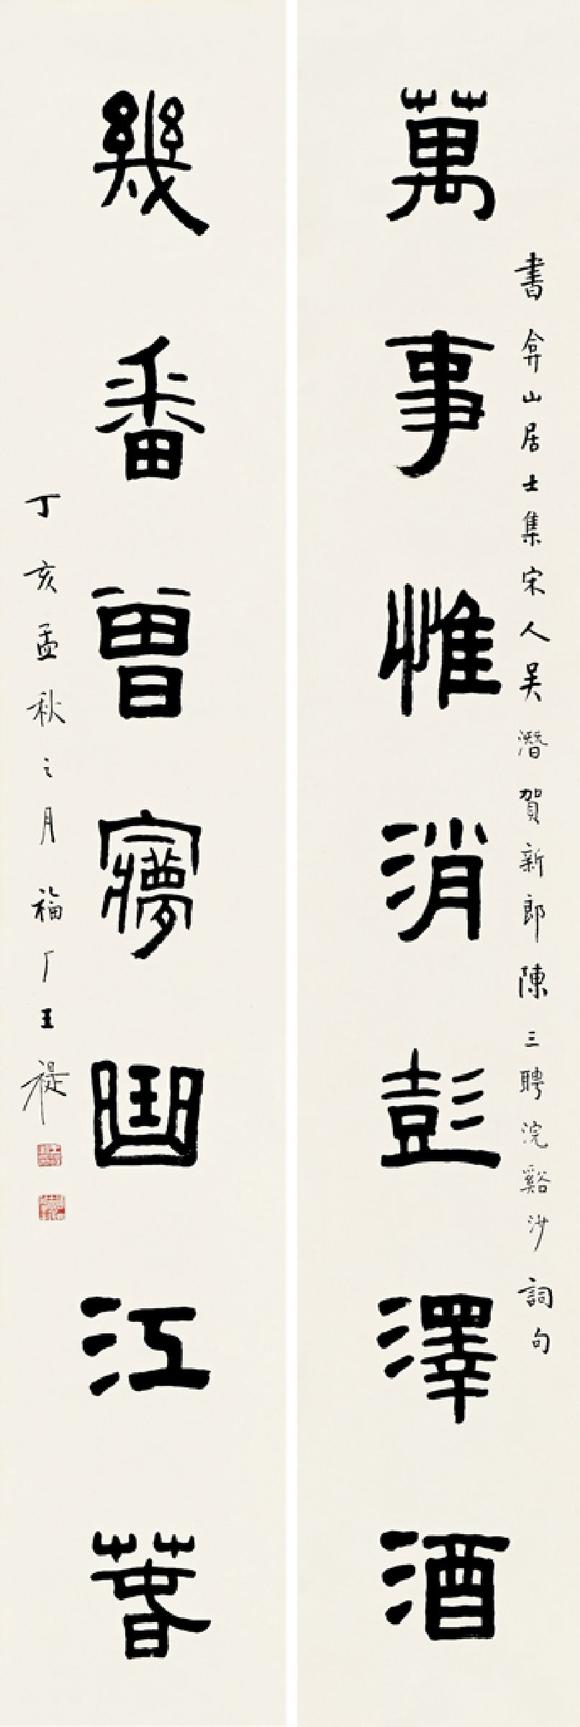 書弇山居士集宋人吳潛賀新郎陳三聘浣谿沙詞句
萬事惟消彭澤酒
幾番曾㝱曲江萅
丁亥孟秋之月福厂王禔